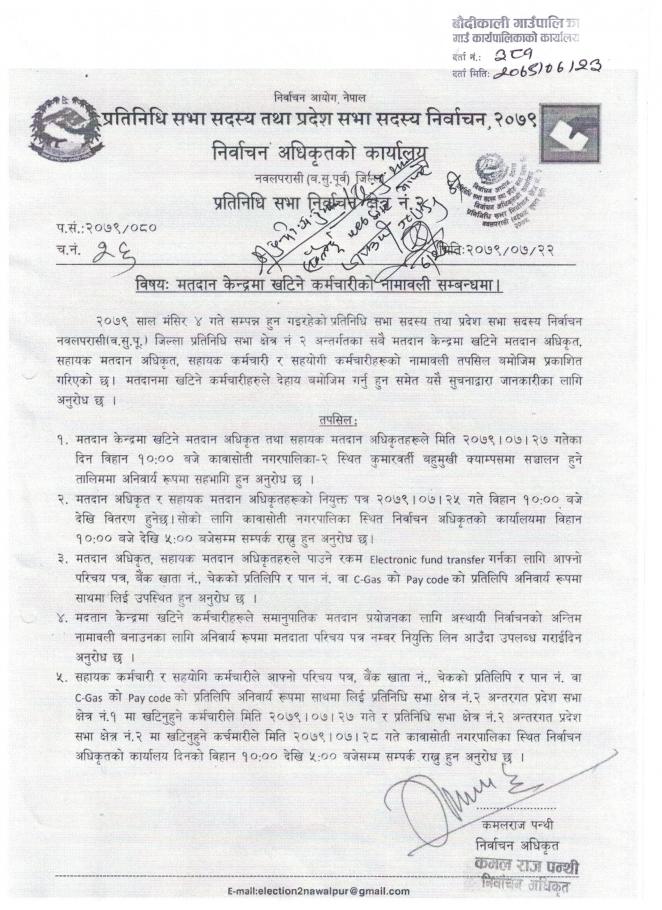 बौदीकाली गाउँपालिका
गाउँ कार्यपालिकाको कार्यालय
दर्ता नं.: ३८१
दर्ता मिति:
निर्वाचन आयोग, नेपाल
प्रतिनिधि सभा सदस्य तथा प्रदेश सभा सदस्य निर्वाचन,२०७९
निर्वाचन अधिकृतको कार्यालय
नवलपरासी (ब.सु.पूर्व) जिल्ला
प्रतिनिधि सभा निर्वाचन क्षेत्र नं.२
प.सं.:२०७९/०८०
च.नं. २६
मिति:२०७९/०७/२२
विषय: मतदान केन्द्रमा खटिने कर्मचारीको नामावली सम्बन्धमा।
२०७९ साल मंसिर ४ गते सम्पन्न हुन गइरहेको प्रतिनिधि सभा सदस्य तथा प्रदेश सभा सदस्य निर्वाचन
नवलपरासी(ब.सु.पू.) जिल्ला प्रतिनिधि सभा क्षेत्र नं २ अन्तर्गतका सबै मतदान केन्द्रमा खटिने मतदान अधिकृत,
सहायक मतदान अधिकृत, सहायक कर्मचारी र सहयोगी कर्मचारीहरूको नामावली तपसिल बमोजिम प्रकाशित
गरिएको छ। मतदानमा खटिने कर्मचारीहरुले देहाय बमोजिम गर्नु हुन समेत यसै सुचनाद्वारा जानकारीका लागि
अनुरोध छ ।
तपसिल:
१. मतदान केन्द्रमा खटिने मतदान अधिकृत तथा सहायक मतदान अधिकृतहरूले मिति २०७९।०७।२७ गतेका
दिन विहान १०:०० बजे कावासोती नगरपालिका-२ स्थित कुमारवर्ती बहुमुखी क्याम्पसमा सञ्चालन हुने
तालिममा अनिवार्य रूपमा सहभागि हुन अनुरोध छ ।
२. मतदान अधिकृत र सहायक मतदान अधिकृतहरूको नियुक्त पत्र २०७९।०७।२५ गते विहान १०:०० बजे
देखि वितरण हुनेछ।सोको लागि कावासोती नगरपालिका स्थित निर्वाचन अधिकृतको कार्यालयमा विहान
१०:०० बजे देखि ५:०० बजेसम्म सम्पर्क राख्नु हुन अनुरोध छ।
३. मतदान अधिकृत, सहायक मतदान अधिकृतहरुले पाउने रकम Electronic fund transfer गर्नका लागि आफ्नो
परिचय पत्र, बैंक खाता नं., चेकको प्रतिलिपि र पान नं. वा C-Gas को Pay code को प्रतिलिपि अनिवार्य रूपमा
साथमा लिई उपस्थित हुन अनुरोध छ ।
४. मदतान केन्द्रमा खटिने कर्मचारीहरूले समानुपातिक मतदान प्रयोजनका लागि अस्थायी निर्वाचनको अन्तिम
नामावली बनाउनका लागि अनिवार्य रूपमा मतदाता परिचय पत्र नम्बर नियुक्ति लिन आउँदा उपलब्ध गराईदिन
अनुरोध छ ।
५. सहायक कर्मचारी र सहयोगि कर्मचारीले आफ्नो परिचय पत्र, बैंक खाता नं., चेकको प्रतिलिपि र पान नं. वा
C-Gas को Pay code को प्रतिलिपि अनिवार्य रूपमा साथमा लिई प्रतिनिधि सभा क्षेत्र नं.२ अन्तरगत प्रदेश सभा
क्षेत्र नं.१ मा खटिनुहुने कर्मचारीले मिति २०७९।०७।२७ गते र प्रतिनिधि सभा क्षेत्र नं.२ अन्तरगत प्रदेश
सभा क्षेत्र नं.२ मा खटिनुहुने कर्चमारीले मिति २०७९।०७।२८ गते कावासोती नगरपालिका स्थित निर्वाचन
अधिकृतको कार्यालय दिनको विहान १०:०० देखि ५:०० बजेसम्म सम्पर्क राख्नु हुन अनुरोध छ ।
कमलराज पन्थी
निर्वाचन अधिकृत
कमल राज पन्थी
निर्वाचन अधिकृत
E-mail:election2nawalpur@gmail.com